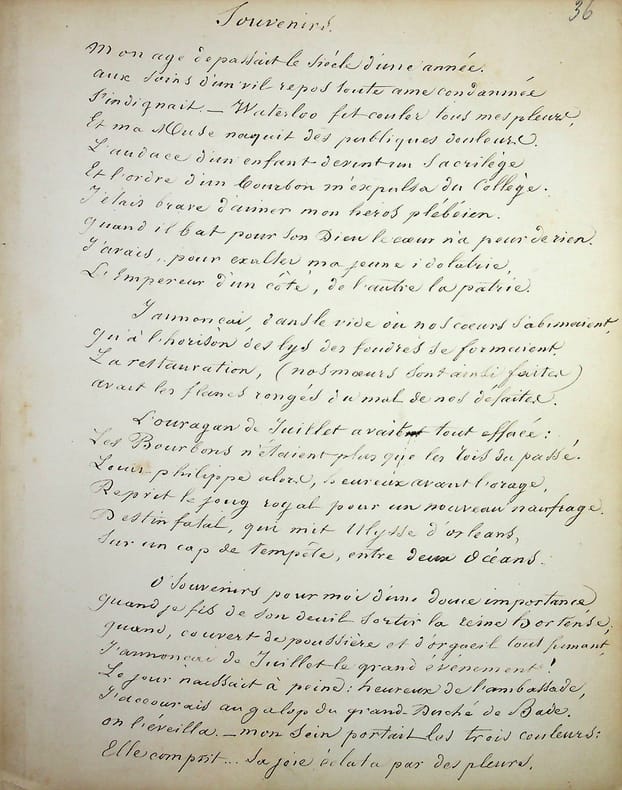 36
Souvenirs.
Mon age depassait le siècle d'une année.
aux soins d'un vil repos toute ame condamnée
s'indignait. — Waterloo fit couler tous mes pleurs,
Et ma Muse naquit des publiques douleurs.
L'audace d'un enfant devint un sacrilège
Et l'ordre d'un Bourbon m'expulsa du Collège.
J'étais brave d'aimer mon héros plébéien.
quand il bat pour son Dieu le cœur n'a peur de rien.
J'avais, pour exalter ma jeune idolatrie,
L'Empereur d'un côté, de l'autre la patrie.
J'annonçai, dans le vide où nos cœurs s'abimaient,
qu'à l'horison des lys des foudres se formaient.
La restauration, (nos mœurs sont ainsi faites)
avait les flancs rongés du mal de nos défaites.
L'ouragan de Juillet avait tout effacé :
Les Bourbons n'étaient plus que les rois du passé.
Louis-philippe alors, heureux avant l'orage,
Reprit le joug royal pour un nouveau naufrage.
Destin fatal, qui mit Ulysse d'orleans,
sur un cap de tempête, entre deux Océans.
O Souvenirs pour moi d'une douce importance
quand je fis de son deuil sortir la reine hortense;
quand, couvert de poussière et d'orgueil tout fumant,
J'annonçai de Juillet le grand événement !
Le jour naissait à peine : heureux de l'ambassade,
J'accourais au galop du grand Duché de Bade.
on l'éveilla. — mon sein portait les trois couleurs :
Elle comprit... sa joie éclata par des pleurs.